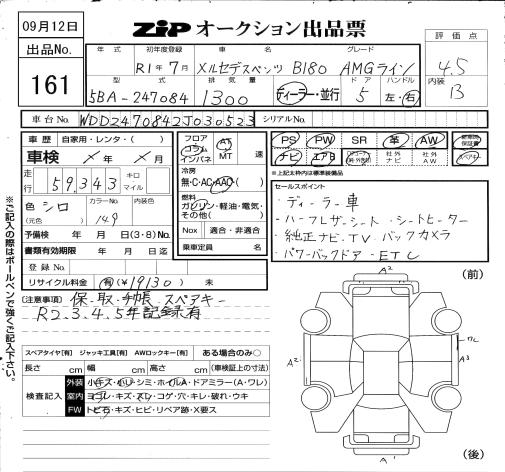 09月12日
ZIP オークション出品票
出品No.
161
年式
初年度登録
車名
グレード
R1年7月
メルセデスベンツ B180
AMGライン
型式
排気量
ドア
ハンドル
5BA-247084
1300
ディーラー・並行
5
左・右
評価点
4.5
内装
B
車台No. WDD2470842J030523
シリアルNo.
車歴 自家用・レンタ・( )
車検 年 月
走行 59,343 キロ マイル
色 シロ
(元色)
カラーNo. 149
内装色
予備検 年 月 日(3・8) No.
書類有効期限 年 月 日
登録No.
リサイクル料金 有(¥19130) 未
フロア コラム インパネ
AT
MT
速
冷房
無・C・AC・AAC( )
燃料
ガソリン・軽油・電気・
その他( )
Nox 適合・非適合
乗車定員 名
PS PW SR 革 AW
ナビ エアB
社外ナビ
社外AW
スペアキー
※上記太枠内は標準装備品
セールスポイント
・ディーラー車
・ハーフレザーシート・シートヒーター
・純正ナビ・TV・バックカメラ
・パワーバックドア・ETC
(注意事項) 保・取・手帳・スペアキー
R2.3.4.5年記録有
スペアタイヤ[有] ジャッキ工具[有] AWロックキー[有] ある場合のみ○
長さ cm 幅 cm 高さ cm (車検証上の寸法)
検査記入
外装 小キズ・小ハリ・シミ・ホイルA・ドアミラー(A・ワレ)
室内 ヨゴレ・キズ・スレ・コゲ・穴・キレ・破れ・ウキ
FW トビ石・キズ・ヒビ・リペア跡・X要ス
※ご記入の際はボールペンで強くご記入下さい。
(前)
A2
A2
A3
A1
(後)